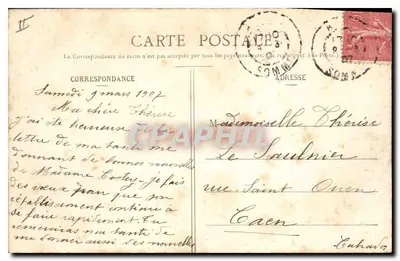 II
CARTE POSTALE
La Correspondance au recto n'est pas acceptée par tous les pays étrangers
CORRESPONDANCE
ADRESSE
SOMME
SOMME
Samedi 9 mars 1907
Ma chère Thérèse
j'ai été heureuse
lettre de ma tante me
donnant de bonnes nouvelles
de Madame je fais
des vœux pour que son
rétablissement continue à
se faire rapidement. Tu
remercieras ma tante de
me donner aussi des nouvelles
Mademoiselle Thérèse
Le Saulnier
rue Saint Ouen
Caen
Calvados